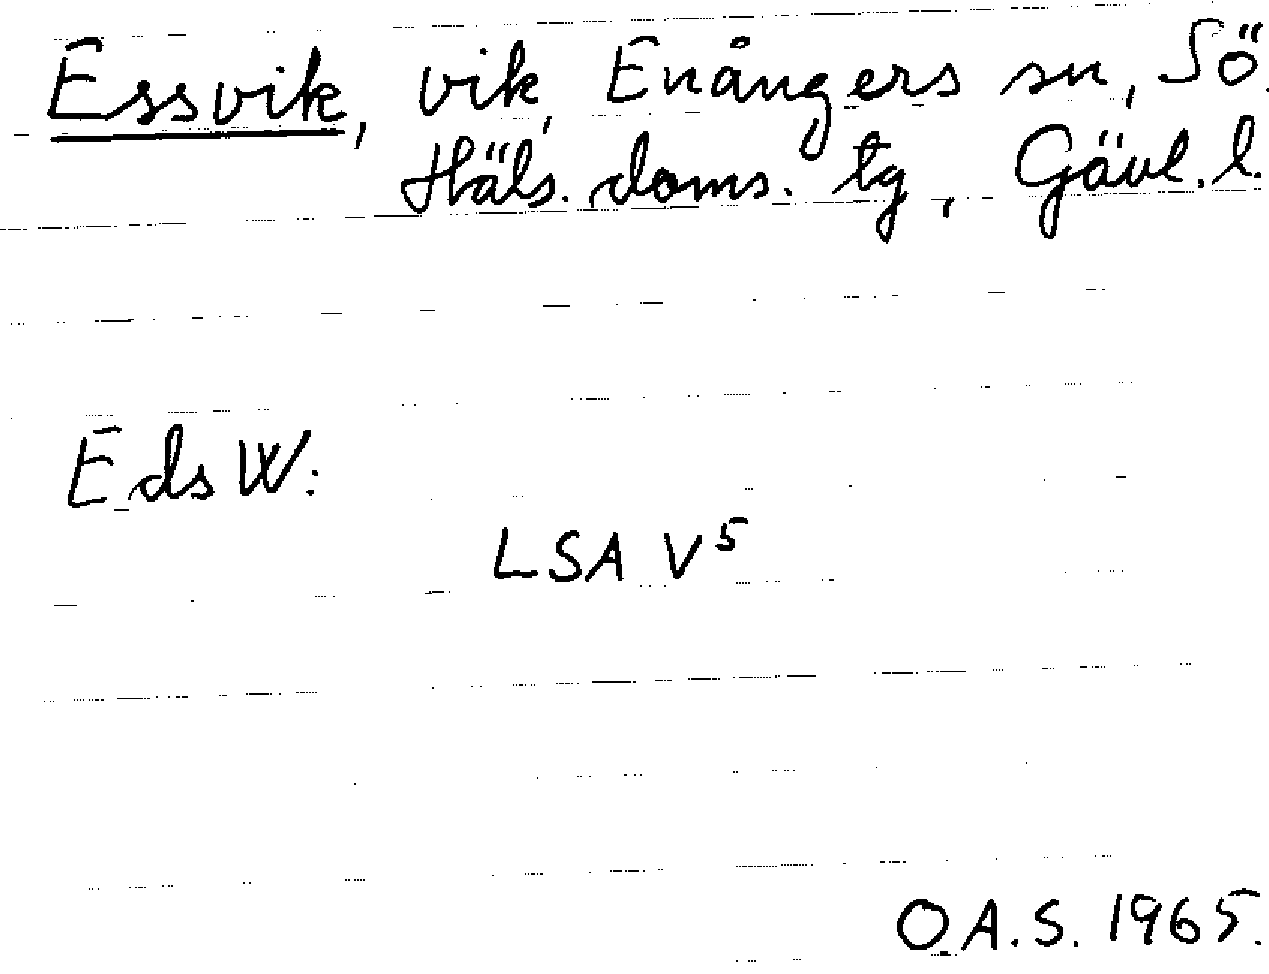 Essvik, vik, Enångers sn, Sö.
Häls. doms. tg, Gävl. l.
Eds W:
LSA V5
O.A.S. 1965.